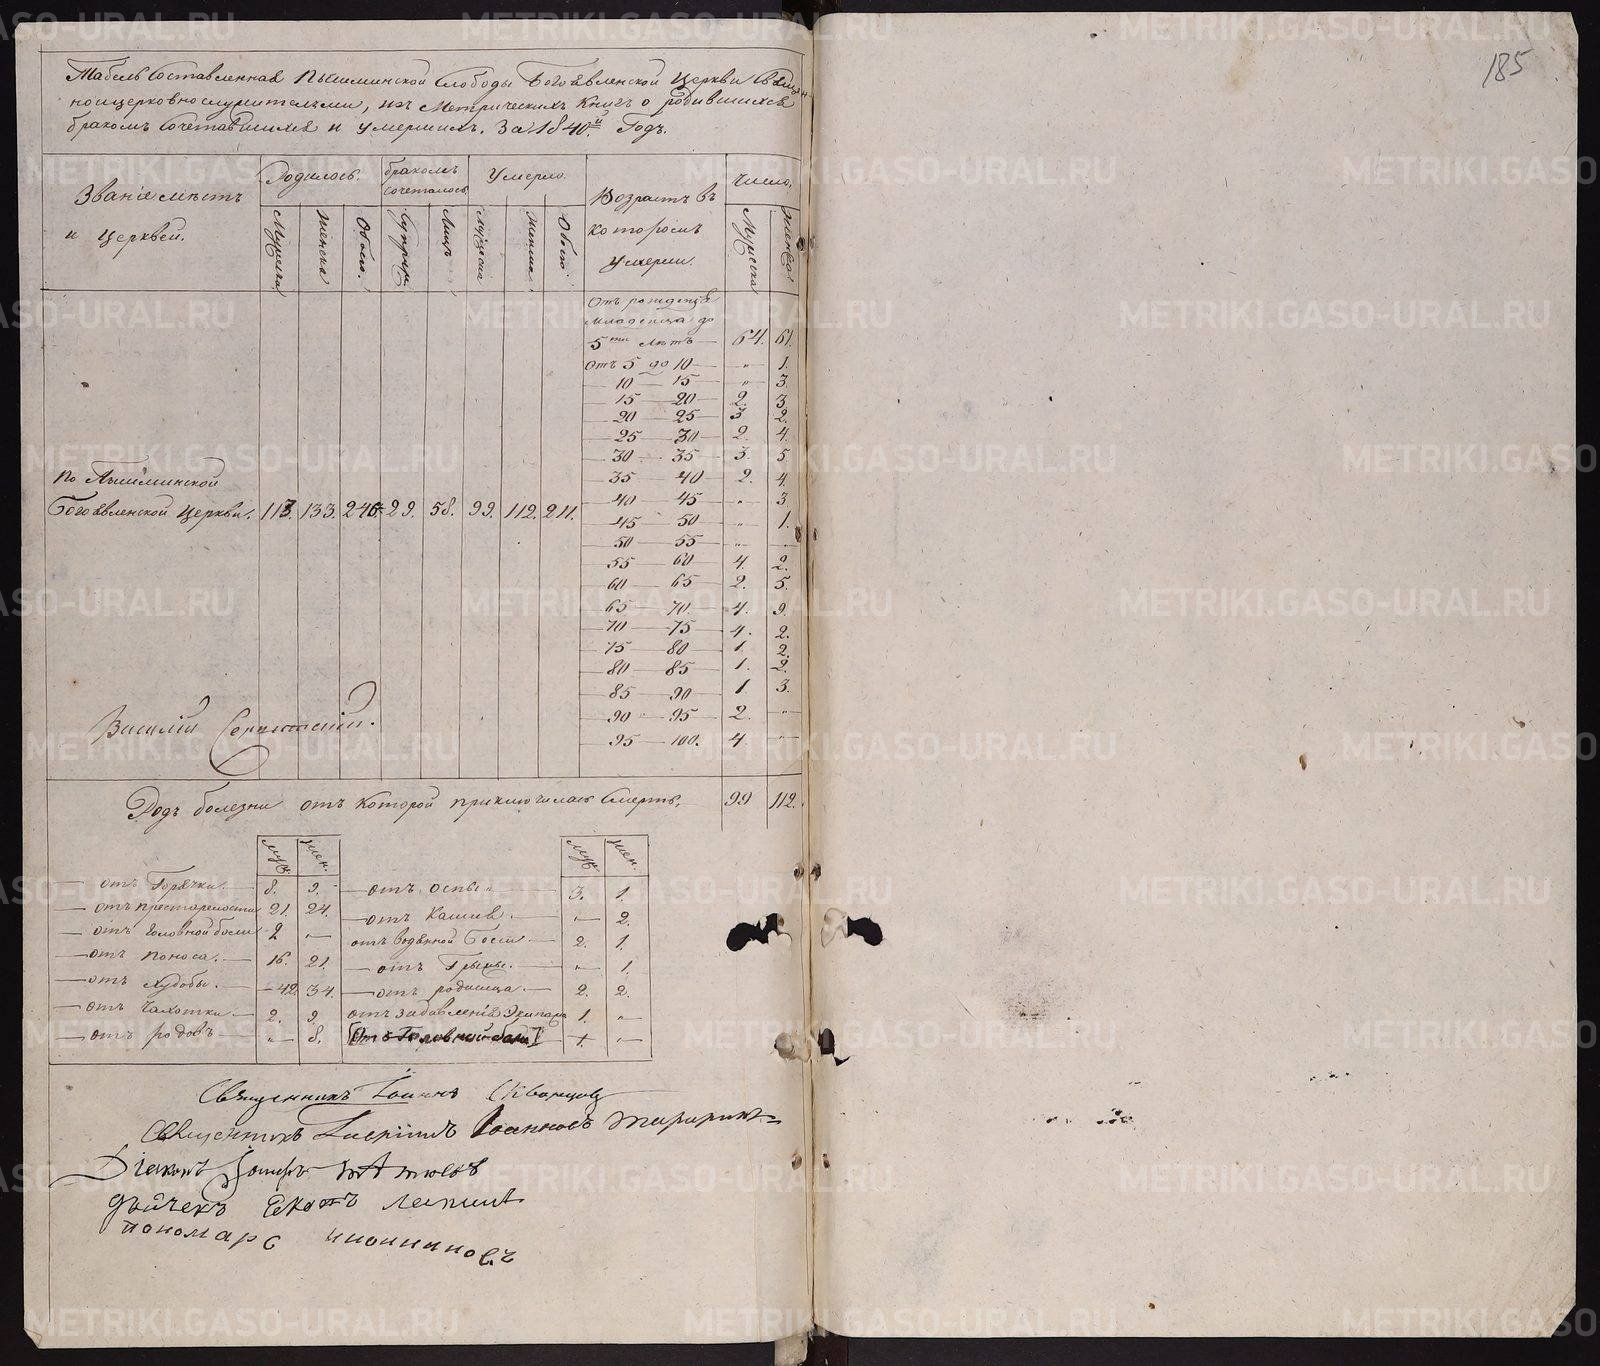 185
Табель составленная Пышминской Слободы Богоявленской Церкви Священ
ноицерковнослужительми, изъ Метрическихъ Книгъ о родившихся
бракомъ сочетавшихся и умершихъ. За 1840й Годъ.
Званіе мѣстъ
и церквей.
Родилось.
Мужеска
женска
Обоего.
бракомъ
сочеталось
Супруж
Лицъ
Умерло.
Мужеска
женска
Обоего.
Возрастъ въ
которомъ
умерли.
Число.
Мужеска
женска
Отъ рожденія
младенца до
5ти лѣтъ — 64. 61.
отъ 5 до 10 — „ 1.
10 — 15 — „ 3.
15 — 20 — 2. 3.
20 — 25 — 3 2.
25 — 30 — 2. 4.
30 — 35 — 3. 5.
35 — 40 — 2. 4.
40 — 45 — „ 3
45 — 50 — „ 1.
50 — 55 — „ —
55 — 60 — 4. 2.
60 — 65 — 2. 5.
65 — 70 — 4. 9.
70 — 75 — 4. 2.
75 — 80 — 1. 2.
80 — 85 — 1. 2.
85 — 90 — 1. 3.
90 — 95 — 2. „
95 — 100. 4. „
По Пышминской
Богоявленской церкви. 113. 133. 246. 29. 58. 99. 112. 211.
Василій
Родъ болезни отъ которой приключилась смерть. 99 112.
муж. жен.
— отъ Горячки. — 8. 9.
— отъ престарелости 21. 24.
— отъ головной боли 2 „
— отъ поноса. — 16. 21.
— отъ худобы. — 42. 34.
— отъ чахотки — 2. 9.
— отъ родовъ — „ 8.
муж. жен.
— отъ оспы — 3. 1.
— отъ кашля. — „ 2.
отъ водяной боли — 2. 1.
— отъ Грыжи. — „ 1.
— отъ родимца. — 2. 2.
отъ задавленія 1. „
Отъ Головной боли 1. „
Священникъ Іоаннъ
Священникъ
Діаконъ
дьячекъ
пономарь